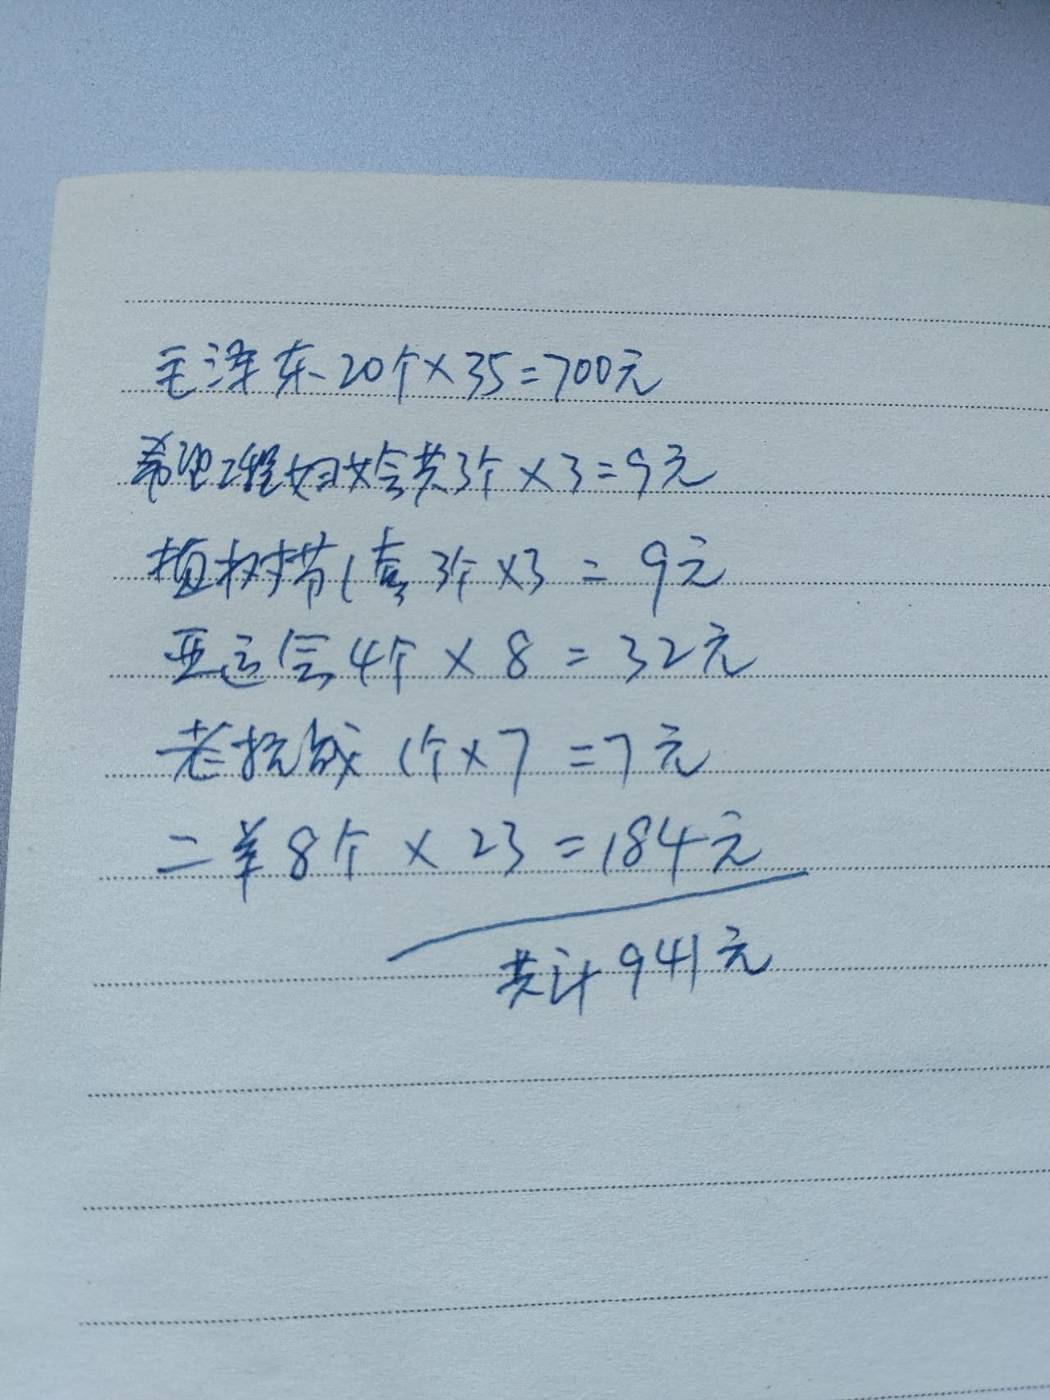 毛泽东20个×35=700元
希望工程妇女会共3个×3=9元
植树节1套3个×3=9元
亚运会4个×8=32元
老抗战1个×7=7元
二羊8个×23=184元
共计941元